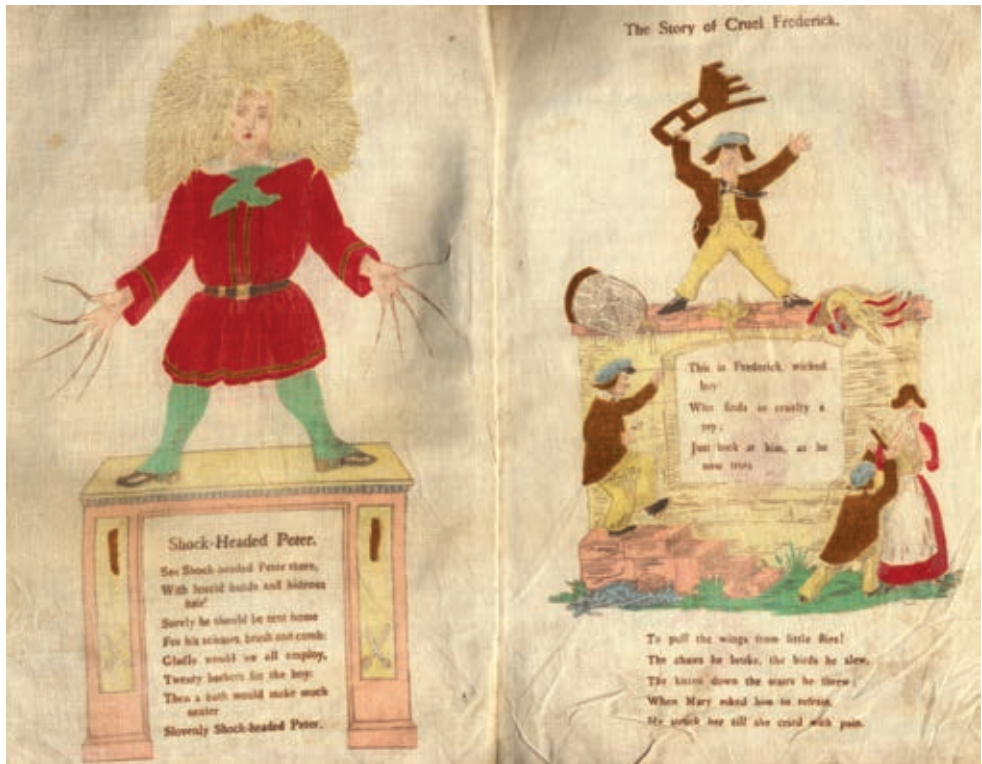 Shock-Headed Peter.
See Shock-headed Peter there,
With horrid hands and hideous
hair!
Surely he should be sent home
For his scissors, brush and comb:
Gladly would we all employ,
Twenty barbers for the boy:
Then a bath would make much
neater
Slovenly Shock-headed Peter.
The Story of Cruel Frederick.
This is Frederick, wicked
boy
Who finds in cruelty a
joy;
Just look at him, as he
now tries
To pull the wings from little flies!
The chairs he broke, the birds he slew,
The kitten down the stairs he threw;
When Mary asked him to refrain,
He struck her till she cried with pain.